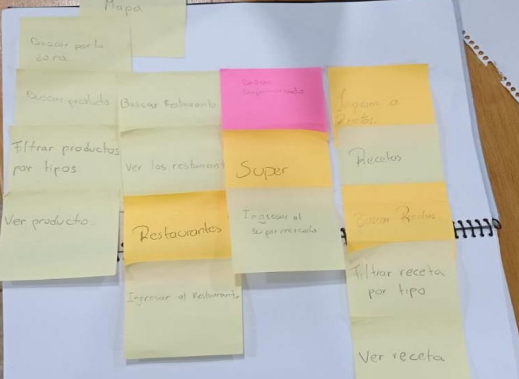 Mapa
Buscar por la
zona
Buscar producto
Filtrar productos
por tipos
Ver producto.
Buscar Restaurante
Ver los restaurant
Restaurantes
Ingresar al Restaurant.
Buscar
supermercado
Super
Ingresar al
supermercado
Ingresar a
Recetas
Buscar Recetas
Filtrar receta
por tipo
Ver receta